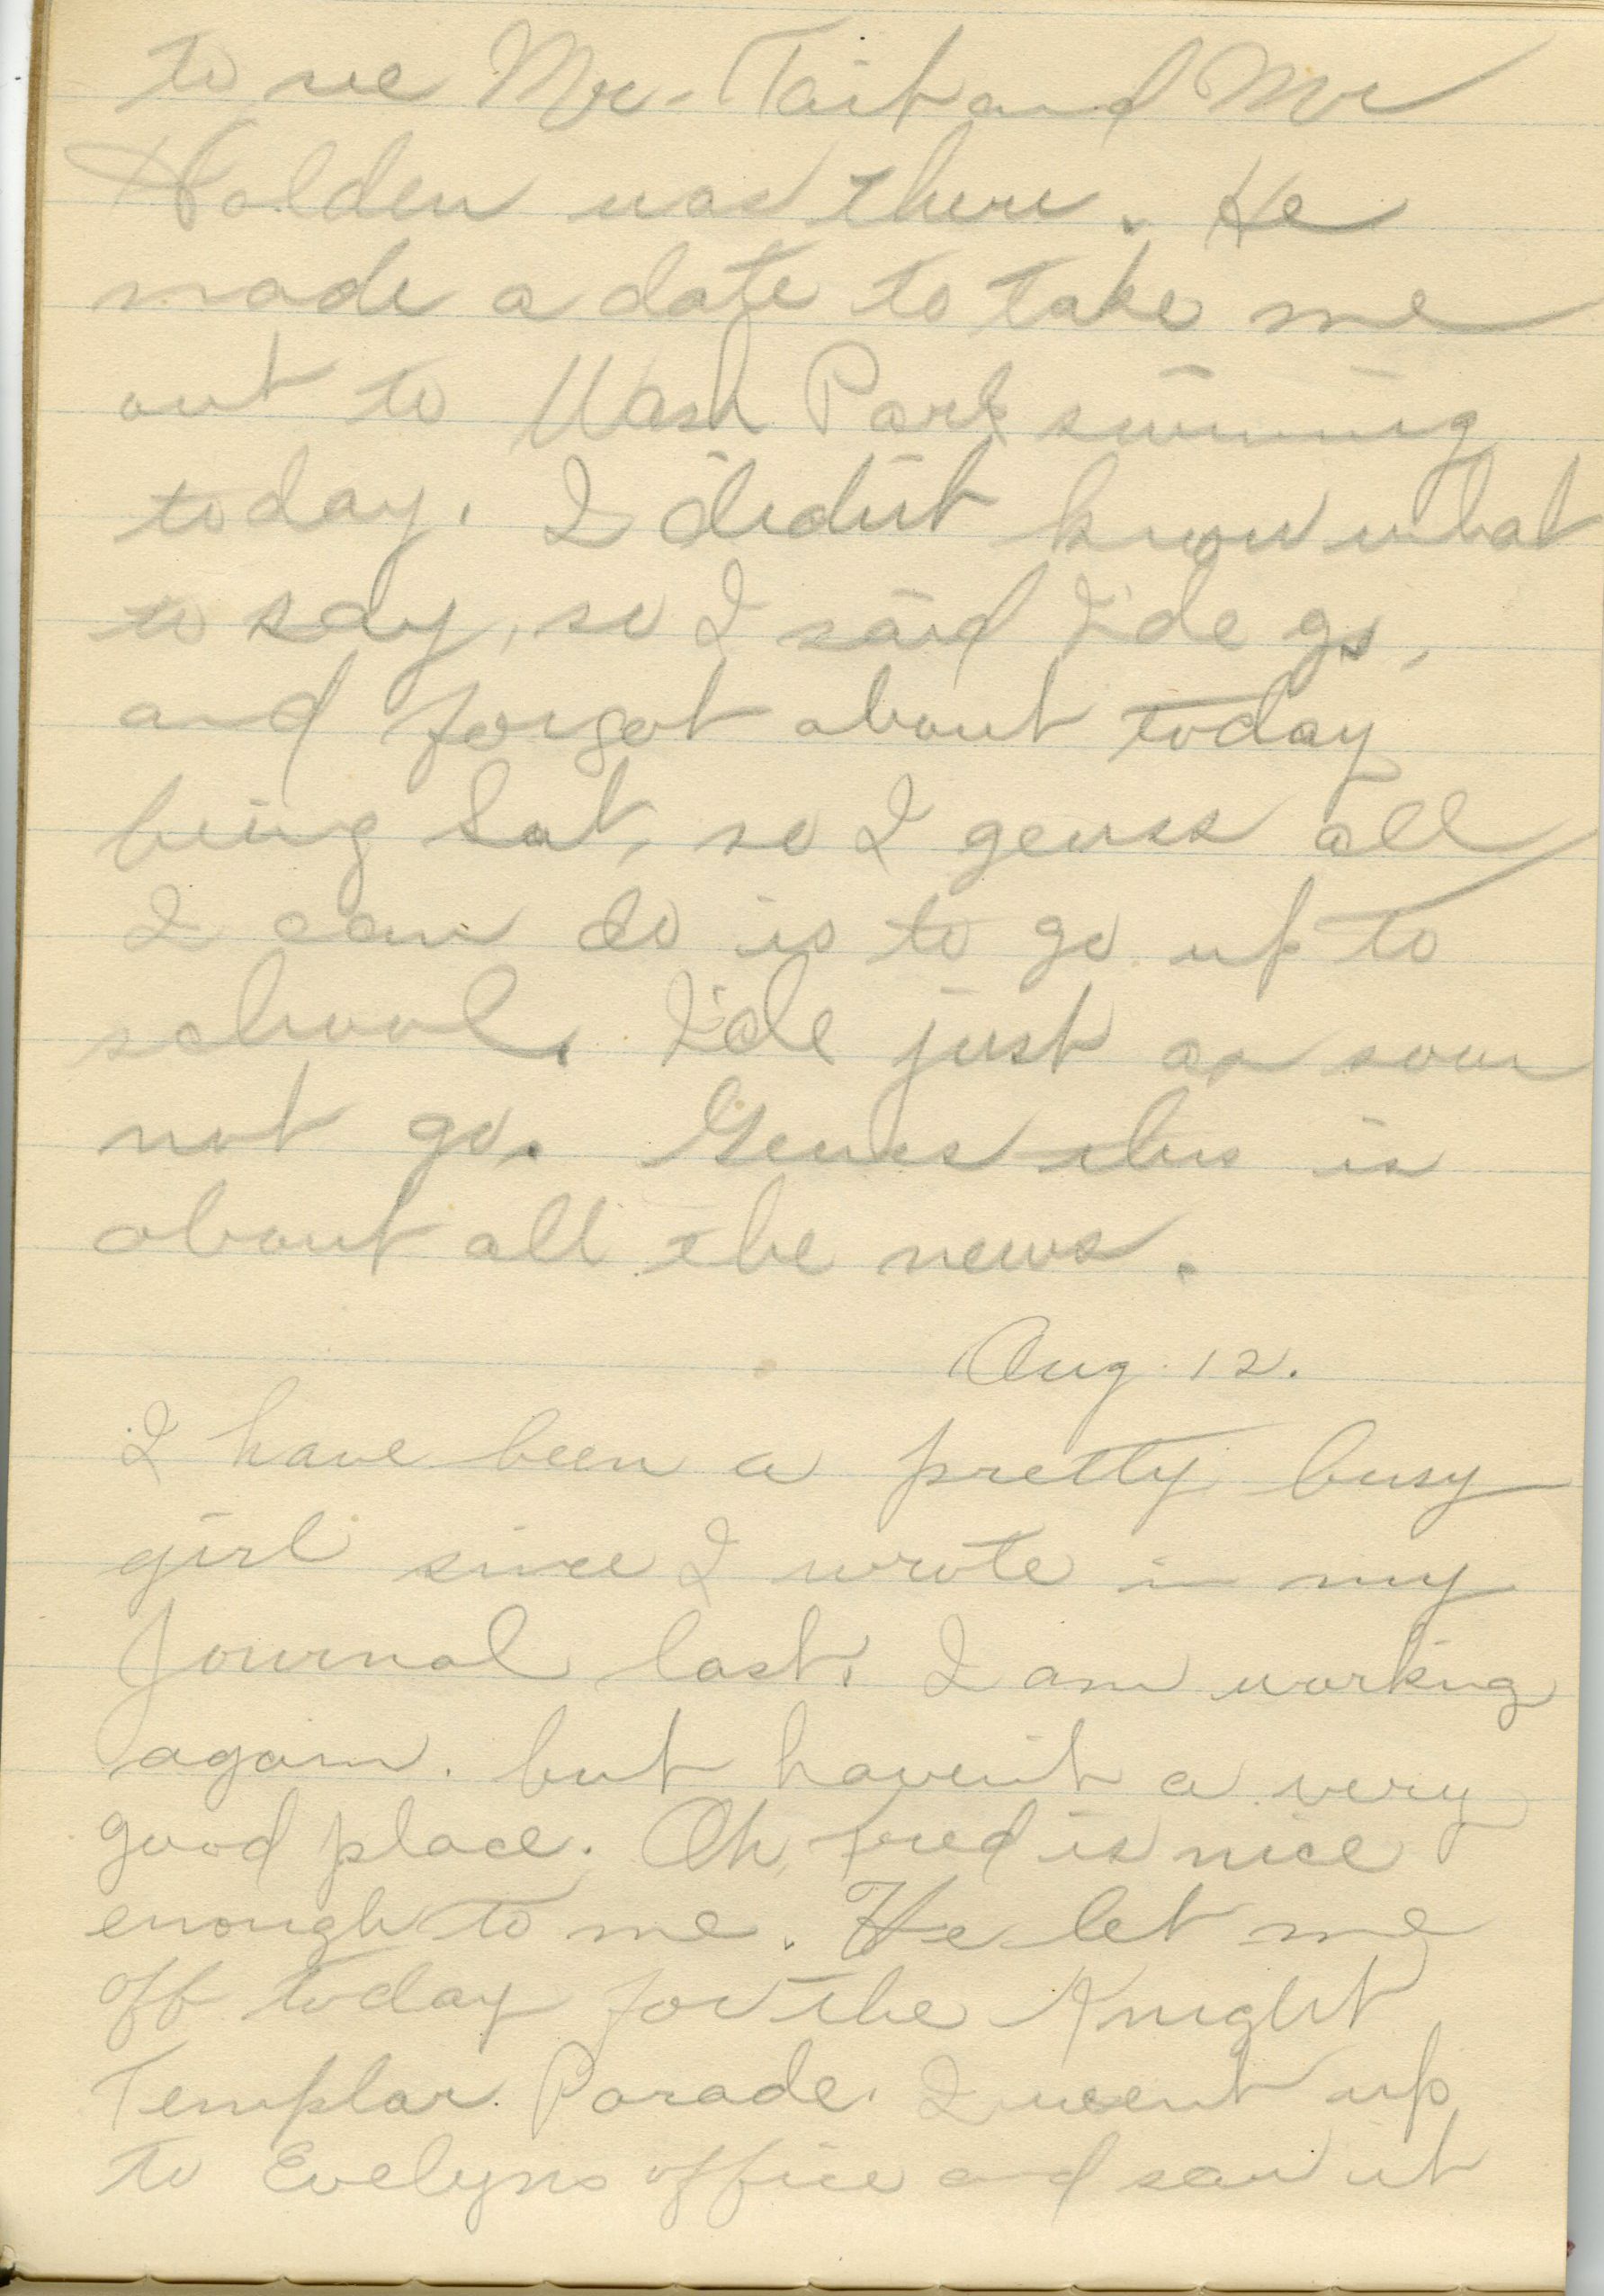 to see Mr. Tait and Mr
Holden was there. He
made a date to take me
out to Wash Park swimming
today. I didn't know what
to say, so I said I'de go,
and forgot about today
being Sat, so I geuss all
I can do is to go up to
school. I'de just as soon
not go. Geuss this is
about all the news.
Aug 12.
I have been a pretty busy
girl since I wrote in my
Journal last. I am working
again. but haven't a very
good place. Oh, Fred is nice
enough to me. He let me
off today for the Knight
Templar Parade. I went up
to Evelyns office and saw it